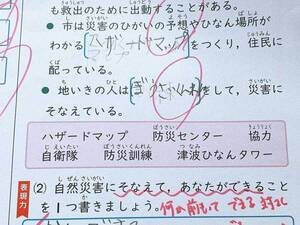 も救出のために出動することがある。
● 市は災害のひがいの予想やひなん場所が
わかる(ハザードマップ)をつくり、住民に
配っている。
● 地いきの人は(ぼうさい)をして、災害に
そなえている。
ハザードマップ 防災センター 協力
自衛隊 防災訓練 津波ひなんタワー
表現力 (2) 自然災害にそなえて、あなたができること
を1つ書きましょう。